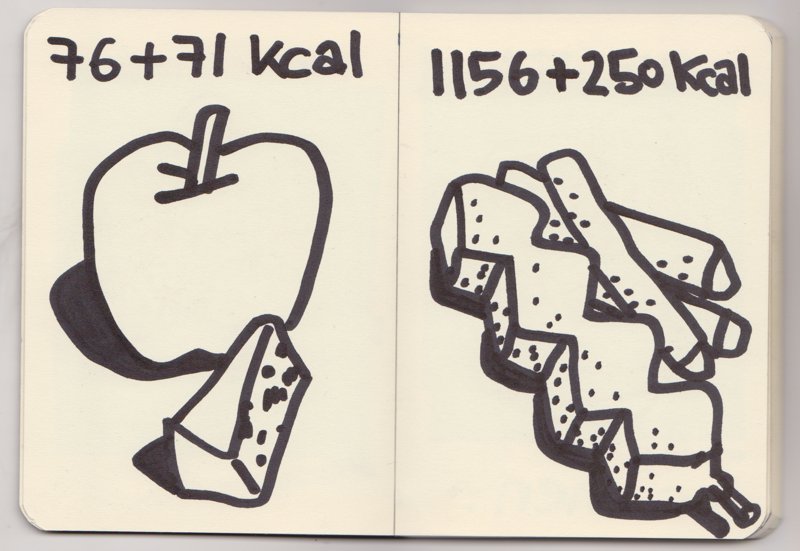 76+71 kcal
1156+250 kcal